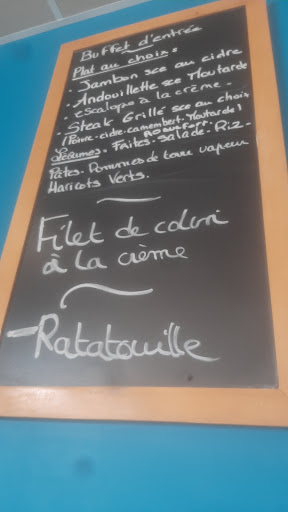 Buffet d'entrée
Plat au choix.
. Jambon sce au cidre
. Andouillette sce Moutarde
. escalope à la crème.
. Steak Grillé sce au choix
(Poivre.cidre.camembert.Moutarde)
Roquefort.
Légumes. Frites. salade. Riz.
Pâtes. Pommes de terre vapeur
Haricots Verts.
Filet de colin
à la crème
Ratatouille